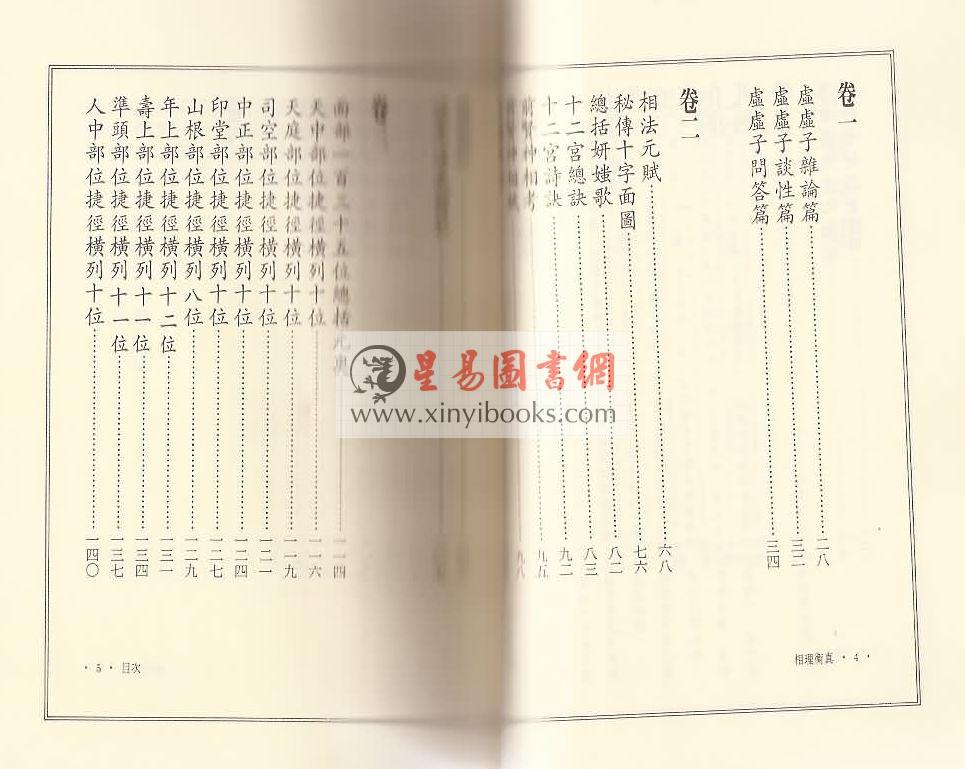 卷一
虛虛子雜論篇……二八
虛虛子談性篇……三二
虛虛子問答篇……三四
卷二
相法元賦……六八
秘傳十字面圖……七六
總括妍媸歌……八二
十二宮總訣……八三
十二宮詩訣……九二
前賢 相考……九五
九八
相理衡真 · 4 ·
卷
面部一百三十五位總括元奧……一一四
天中部位捷徑橫列十位……一一六
天庭部位捷徑橫列十位……一一九
司空部位捷徑橫列十位……一二一
中正部位捷徑橫列十位……一二四
印堂部位捷徑橫列十位……一二七
山根部位捷徑橫列八位……一二九
年上部位捷徑橫列十二位……一三一
壽上部位捷徑橫列十一位……一三四
準頭部位捷徑橫列十一位……一三七
人中部位捷徑橫列十位……一四〇
· 5 · 目次
星易圖書網
www.xinyibooks.com